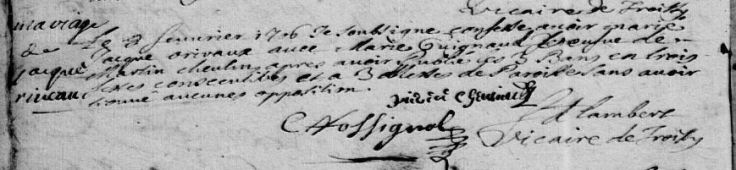 vicaire de Froidy
mariage
de
jacque
riveau
Le 8 feuvrier 1706 Je soubsigne confesse avoir marié
jacque orivaux avec Marie Guignaud veufve de
Martin cheulin apres avoir publié les 3 Bans en trois
festes consecutives et a 3 Messes de Paroisse sans avoir
trouvé aucunes oppotition.
C Rossignol
Lambert
Vicaire de Froidy